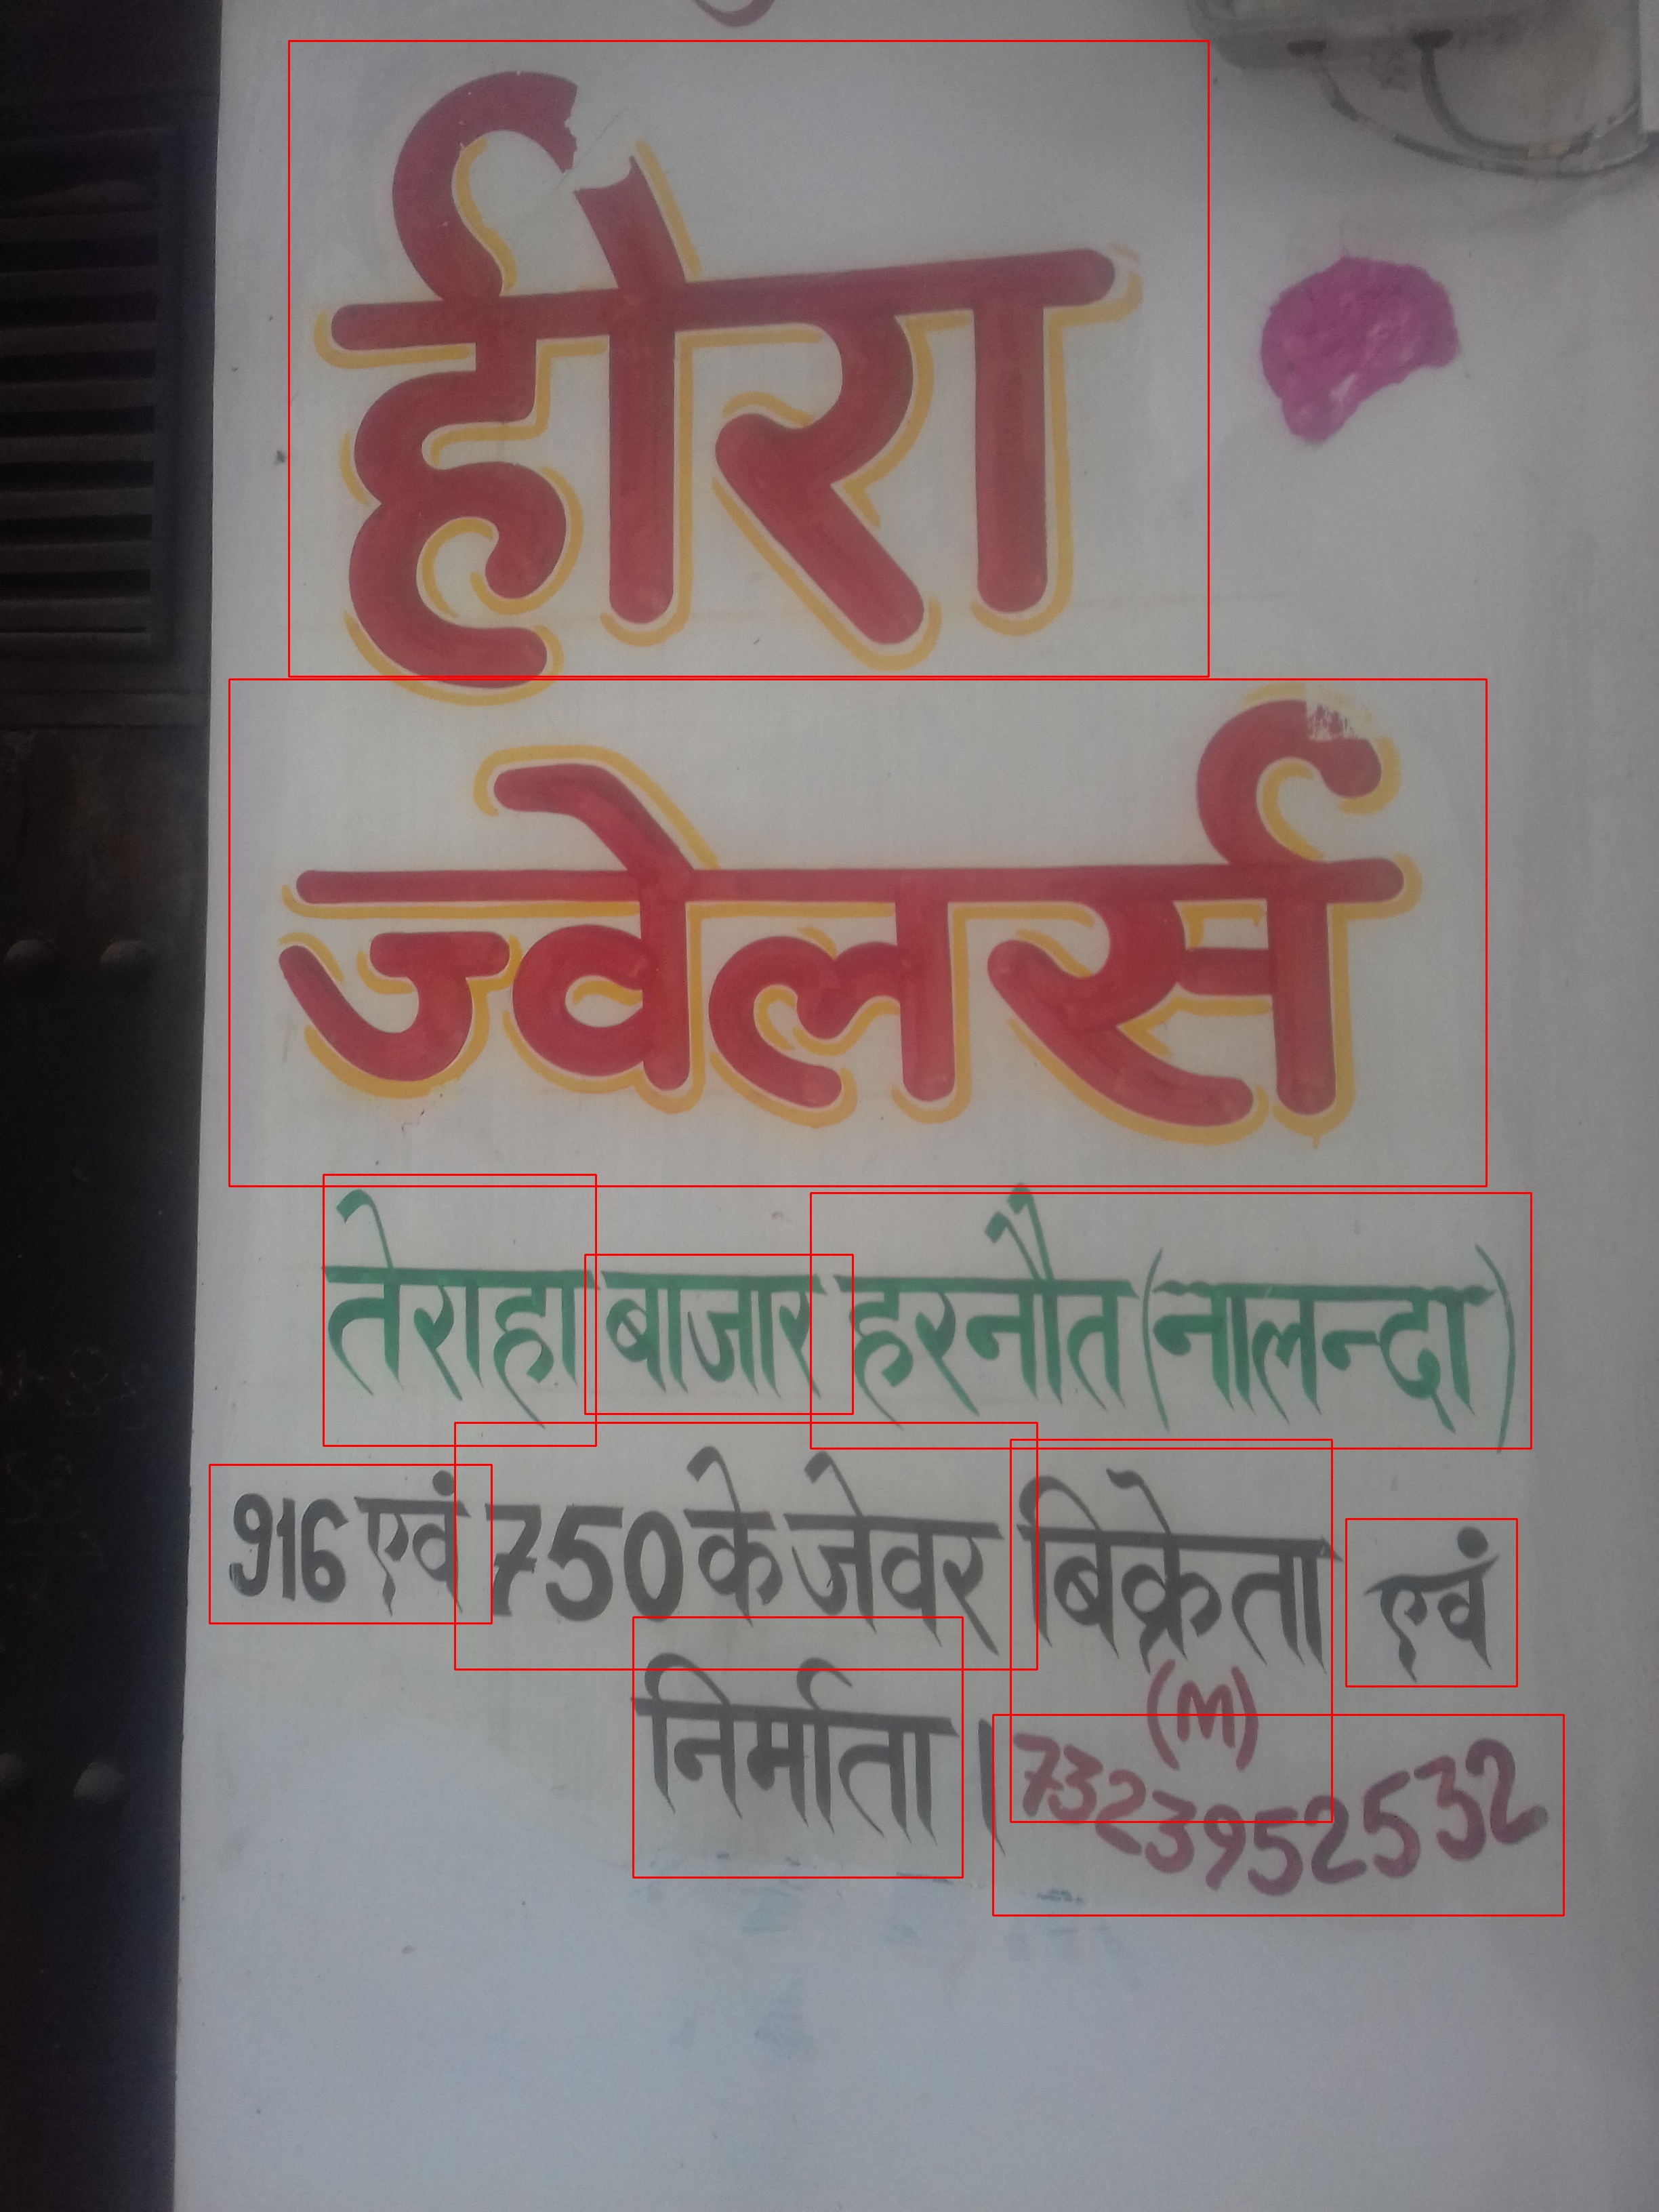 हीरा
ज्वेलर्स
तेराहा बाजार हरनौत (नालन्दा)
916 एवं 750 के जेवर बिक्रेता एवं
निर्माता ।
(M)
7323952532